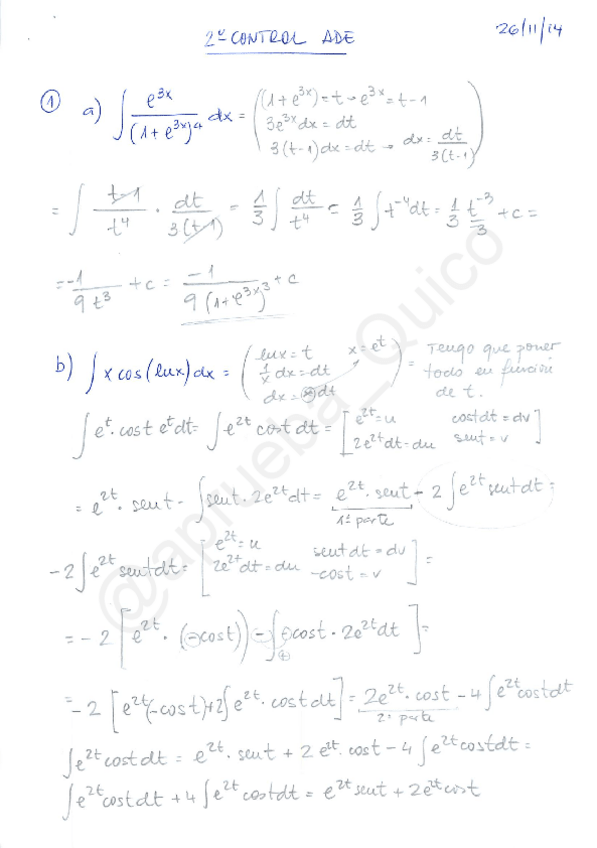 2º CONTROL ADE
26/11/14
① a) ∫ e^{3x}/(1+e^{3x})^4 dx = ( (1+e^{3x}) = t → e^{3x} = t-1
3e^{3x}dx = dt
3(t-1)dx = dt → dx = dt/3(t-1) )
= ∫ t-1/t^4 · dt/3(t-1) = 1/3 ∫ dt/t^4 = 1/3 ∫ t^{-4}dt = 1/3 t^{-3}/3 + c =
= -1/9t^3 + c = -1/9(1+e^{3x})^3 + c
b) ∫ x cos(lnx)dx = ( lnx = t x = e^t
1/x dx = dt
dx = x dt ) = Tengo que poner
todo en función
de t.
∫ e^t · cost e^t dt = ∫ e^{2t} cost dt = [ e^{2t} = u cost dt = dv
2e^{2t}dt = du sent = v ]
= e^{2t} · sent - ∫ sent · 2e^{2t}dt = e^{2t} · sent - 2 ∫ e^{2t} sent dt =
1ª parte
-2 ∫ e^{2t} sent dt = [ e^{2t} = u sent dt = dv
2e^{2t}dt = du -cost = v ] =
= -2 [ e^{2t} · (-cost) - ∫ -cost · 2e^{2t}dt ] =
(+)
= -2 [ e^{2t}(-cost) + 2 ∫ e^{2t} · cost dt ] = 2e^{2t} · cost - 4 ∫ e^{2t} cost dt
2ª parte
∫ e^{2t} cost dt = e^{2t} · sent + 2 e^{2t} · cost - 4 ∫ e^{2t} cost dt =
∫ e^{2t} cost dt + 4 ∫ e^{2t} cost dt = e^{2t} sent + 2e^{2t} cost
@aprueba_Quico